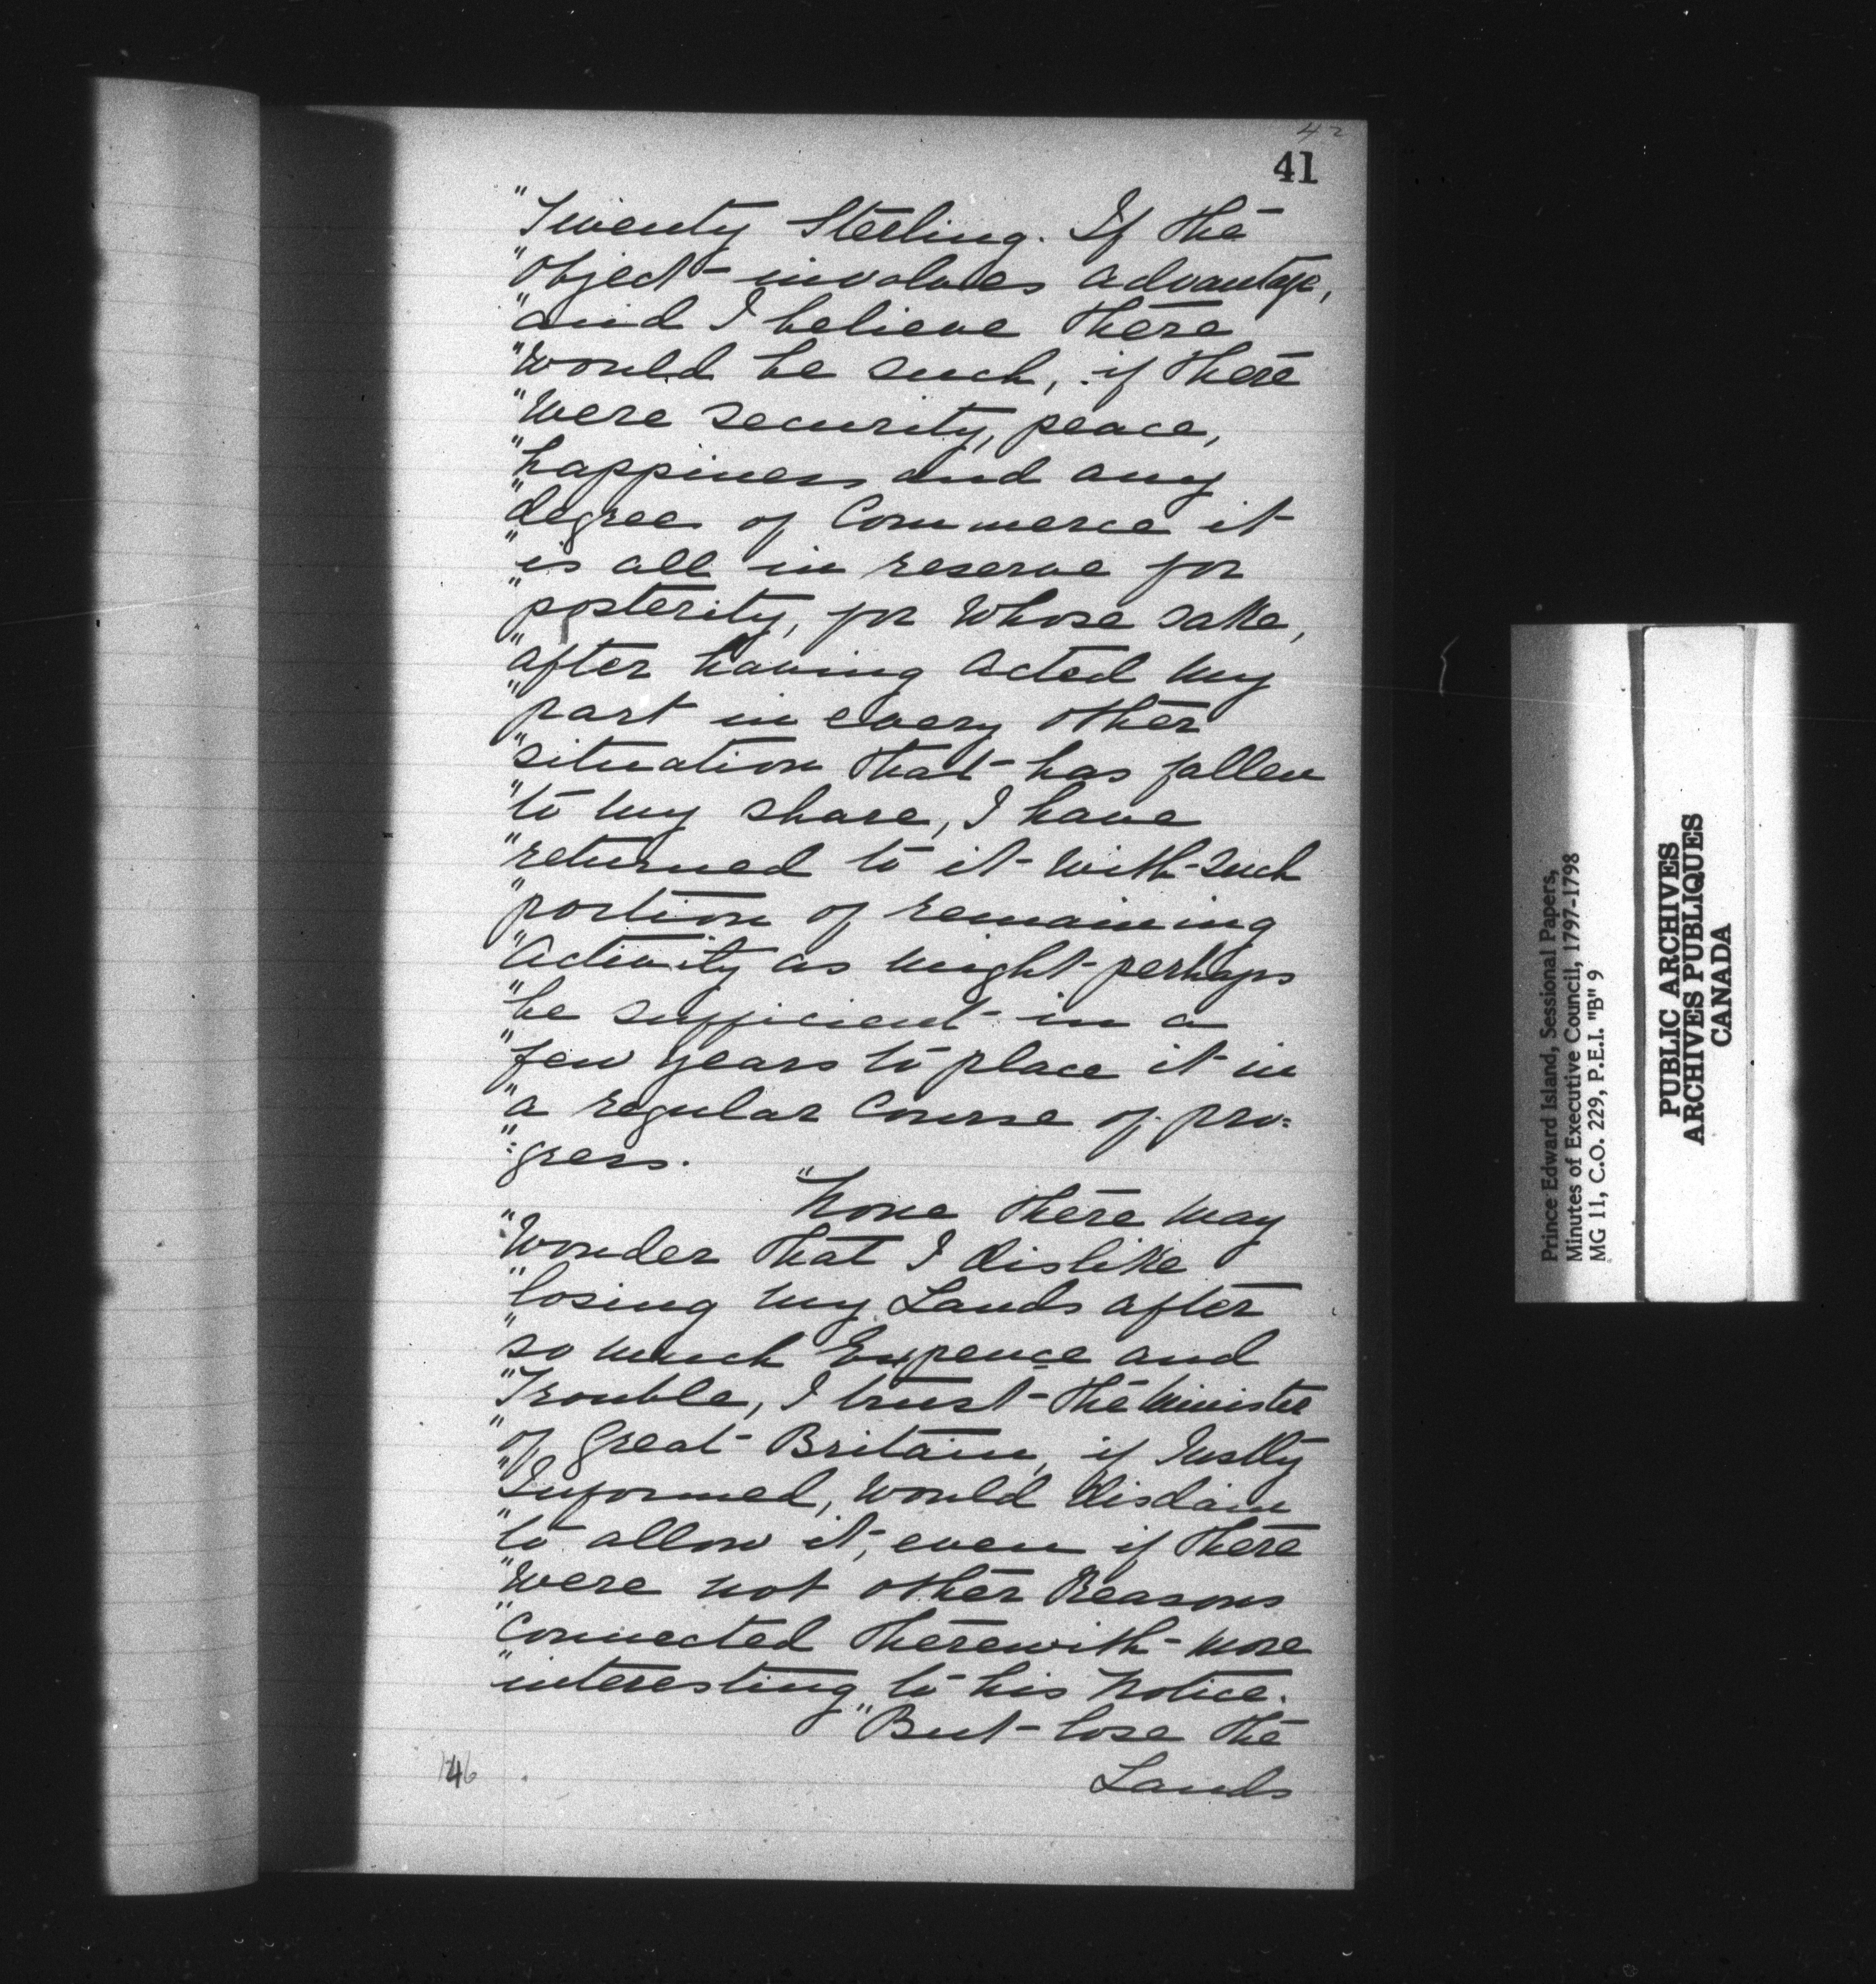 42
41
"Twenty Sterling. If the
"object involves advantage,
"and I believe there
"would be such, if there
"Were security, peace,
"happiness and any
"degree of Commerce it
"is all in reserve for
"posterity, for Whose sake,
"after having acted my
"part in every other
"situation that has fallen
"to my share, I have
"returned to it with such
"portion of remaining
"Activity as might perhaps
"be sufficient in a
"few years to place it in
"a regular Course of pro:
":gress.
"None there may
"Wonder that I dislike
"losing my Lands after
"so much Expence and
"Trouble, I trust the Minister
"of Great Britain, if Justly
"Informed, would disdain
"to allow it, even if there
"Were not other Reasons
"Connected therewith more
"interesting to his Notice.
"But lose the
Lands
Prince Edward Island, Sessional Papers,
Minutes of Executive Council, 1797-1798
MG 11, C.O. 229, P.E.I. "B" 9
PUBLIC ARCHIVES
ARCHIVES PUBLIQUES
CANADA